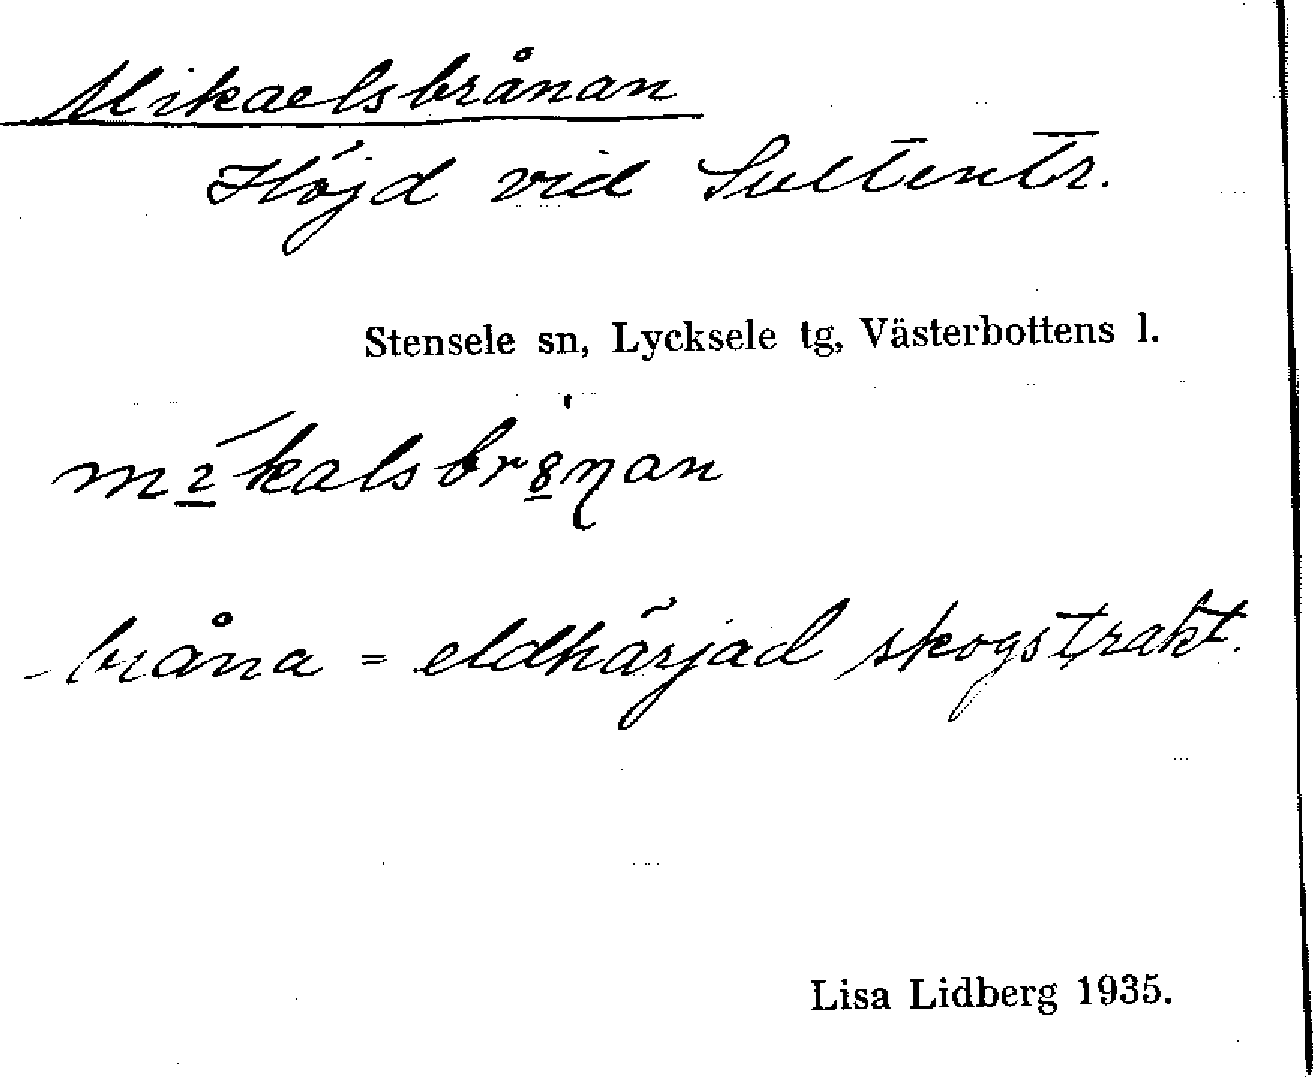 Mikaelsbrånan
Höjd vid Sultentr.
Stensele sn, Lycksele tg, Västerbottens l.
-bråna = eldhärjad skogstrakt.
Lisa Lidberg 1935.